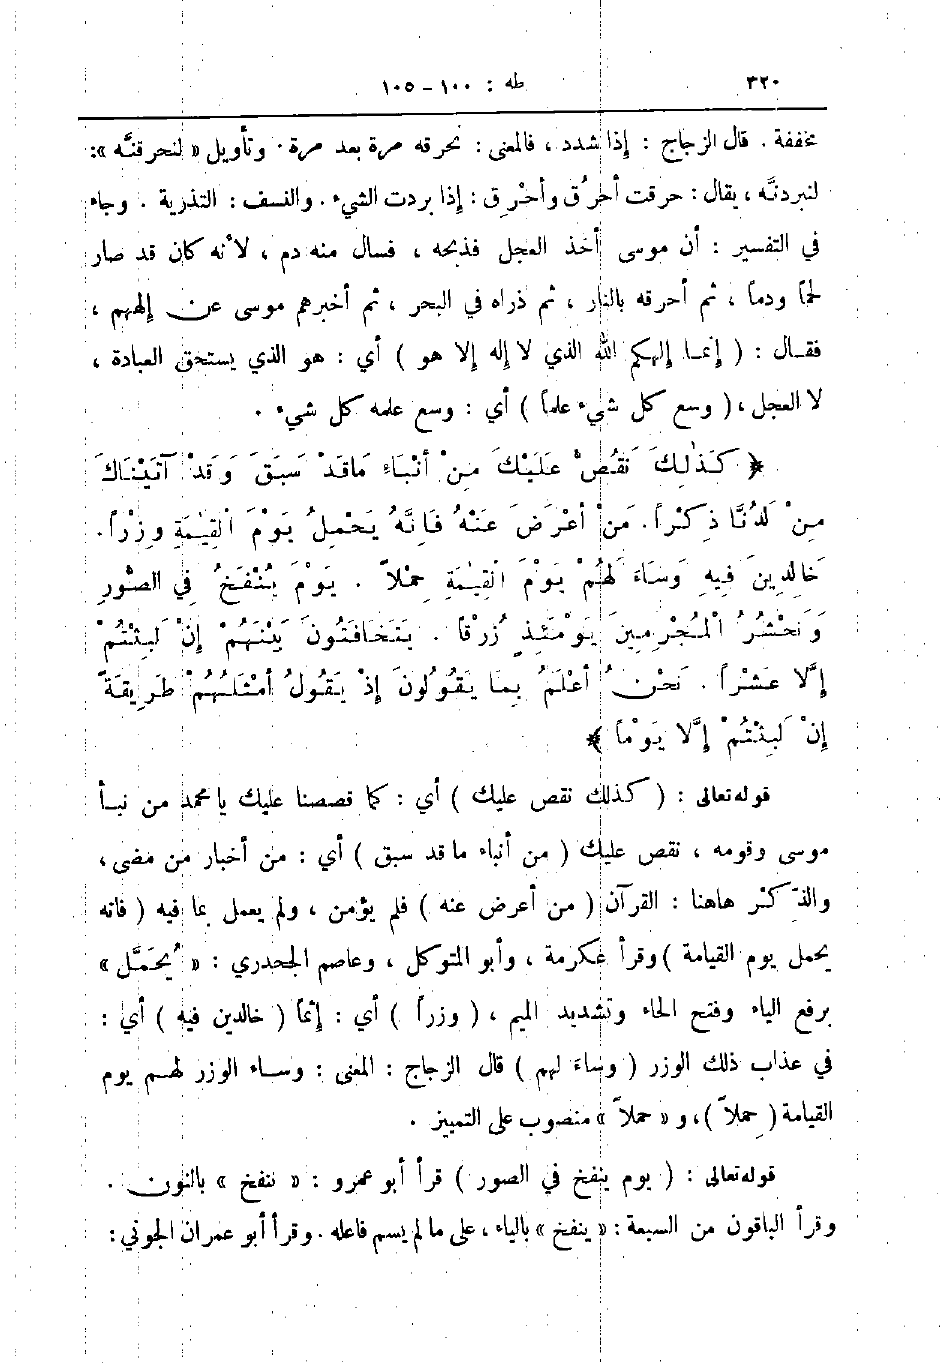 ٣٢٠
طه : ١٠٠ – ١٠٥
مخففة . قال الزجاج : إذا شدد ، فالمعنى : نحرقه مرة بعد مرة . وتأويل « لنحرقنَّه » :
لنبردنَّه ، يقال : حرقت أحرُق وأحْرِق : إذا بردت الشيء . والنسف : التذرية . وجاء
في التفسير : أن موسى أخذ العجل فذبحه ، فسال منه دم ، لأنه كان قد صار
لحماً ودماً ، ثم أحرقه بالنار ، ثم ذراه في البحر ، ثم أخبرهم موسى عن إلههم ،
فقال : ( إنما إلهكم الله الذي لا إله إلا هو ) أي : هو الذي يستحق العبادة ،
لا العجل ، ( وسع كل شيء علماً ) أي : وسع علمه كل شيء .
﴿ كَذٰلِكَ نَقُصُّ عَلَيْكَ مِنْ أَنْبَاءِ مَا قَدْ سَبَقَ وَقَدْ آتَيْنَاكَ
مِنْ لَدُنَّا ذِكْراً . مَنْ أَعْرَضَ عَنْهُ فَإِنَّهُ يَحْمِلُ يَوْمَ الْقِيٰمَةِ وِزْراً .
خَالِدِينَ فِيهِ وَسَاءَ لَهُمْ يَوْمَ الْقِيٰمَةِ حِمْلاً . يَوْمَ يُنْفَخُ فِي الصُّورِ
وَنَحْشُرُ الْمُجْرِمِينَ يَوْمَئِذٍ زُرْقاً . يَتَخَافَتُونَ بَيْنَهُمْ إِنْ لَبِثْتُمْ
إِلَّا عَشْراً . نَحْنُ أَعْلَمُ بِمَا يَقُولُونَ إِذْ يَقُولُ أَمْثَلُهُمْ طَرِيقَةً
إِنْ لَبِثْتُمْ إِلَّا يَوْماً ﴾
قوله تعالى : ( كذلك نقص عليك ) أي : كما قصصنا عليك يا محمد من نبأ
موسى وقومه ، نقص عليك ( من أنباء ما قد سبق ) أي : من أخبار من مضى ،
والذِّكْر هاهنا : القرآن ( من أعرض عنه ) فلم يؤمن ، ولم يعمل بما فيه ( فإنه
يحمل يوم القيامة ) وقرأ عكرمة ، وأبو المتوكل ، وعاصم الجحدري : « يُحَمَّل »
برفع الياء وفتح الحاء وتشديد الميم ، ( وزراً ) أي : إثماً ( خالدين فيه ) أي :
في عذاب ذلك الوزر ( وساءَ لهم ) قال الزجاج : المعنى : وساء الوزر لهم يوم
القيامة ( حِملاً ) ، و « حملاً » منصوب على التمييز .
قوله تعالى : ( يوم ينفخ في الصور ) قرأ أبو عمرو : « ننفخ » بالنون .
وقرأ الباقون من السبعة : « ينفخ » بالياء ، على ما لم يسم فاعله . وقرأ أبو عمران الجوني :